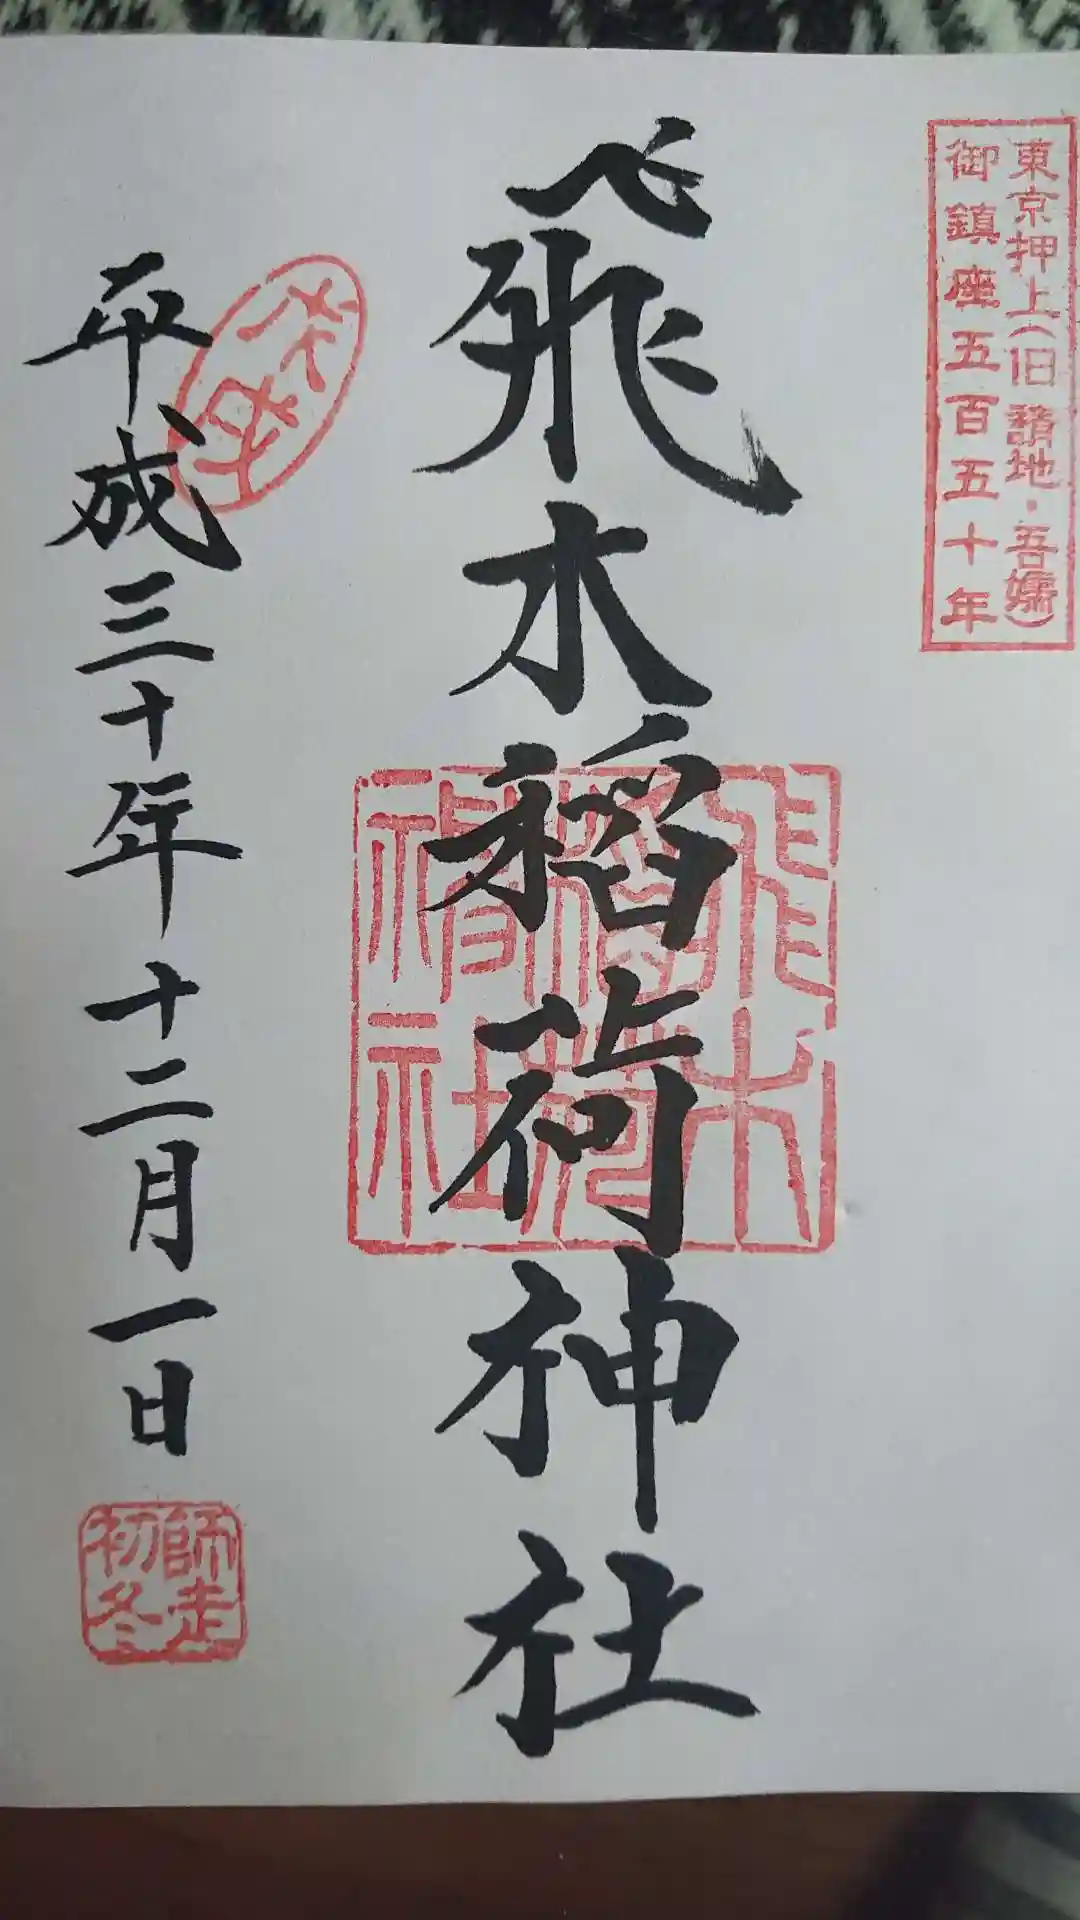 東京押上(旧請地・吾嬬)
御鎮座五百五十年
飛木稲荷神社
飛木
稲荷
神社
平成三十年十二月一日
師走
初冬